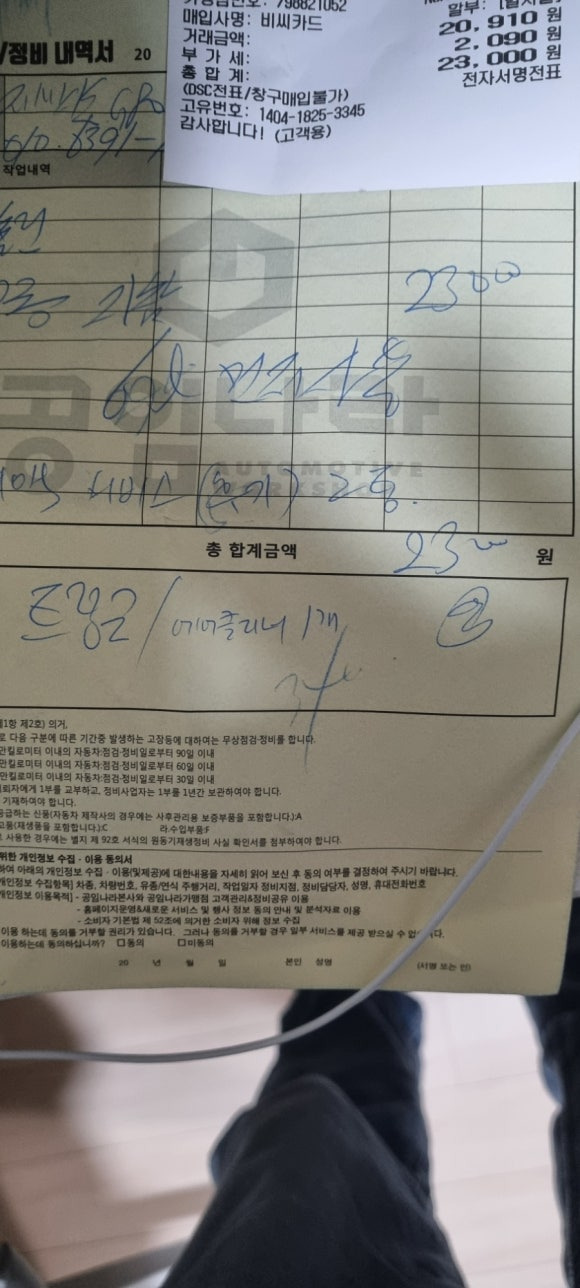 798821052
매입사명: 비씨카드
할부:
거래금액: 20,910 원
부 가 세: 2,090 원
총 합 계: 23,000 원
전자서명전표
(DSC전표/창구매입불가)
고유번호: 1404-1825-3345
감사합니다! (고객용)
/정비 내역서 20
작업내역
23000
공임나라
AUTOMOTIVE
서비스 (휴기)
총 합계금액 2300 원
트렁크 / 에어클리너 1개
제1항 제2호) 의거,
로 다음 구분에 따른 기간중 발생하는 고장등에 대하여는 무상점검·정비를 합니다.
만킬로미터 이내의 자동차:점검·정비일로부터 90일 이내
만킬로미터 이내의 자동차:점검·정비일로부터 60일 이내
만킬로미터 이내의 자동차:점검·정비일로부터 30일 이내
뢰자에게 1부를 교부하고, 정비사업자는 1부를 1년간 보관하여야 합니다.
기재하여야 합니다.
공급하는 신품(자동차 제작사의 경우에는 사후관리용 보증부품을 포함합니다.):A
고품(재생품을 포함합니다.):C 라.수입부품:F
사용한 경우에는 별지 제 92호 서식의 원동기재생정비 사실 확인서를 첨부하여야 합니다.
위한 개인정보 수집 · 이용 동의서
하여 아래의 개인정보 수집 · 이용(및제공)에 대한내용을 자세히 읽어 보신 후 동의 여부를 결정하여 주시기 바랍니다.
개인정보 수집항목] 차종, 차량번호, 유종/연식 주행거리, 작업일자 정비지점, 정비담당자, 성명, 휴대전화번호
개인정보 이용목적] - 공임나라본사와 공임나라가맹점 고객관리&정비공유 이용
- 홈페이지운영&새로운 서비스 및 행사 정보 동의 안내 및 분석자료 이용
- 소비자 기본법 제 52조에 의거한 소비자 위해 정보 수집
이용 하는데 동의를 거부할 권리가 있습니다. 그러나 동의를 거부할 경우 일부 서비스를 제공 받으실 수 없습니다.
이용하는데 동의하십니까? □동의 □미동의
20 년 월 일 본인 성명 (서명 또는 인)